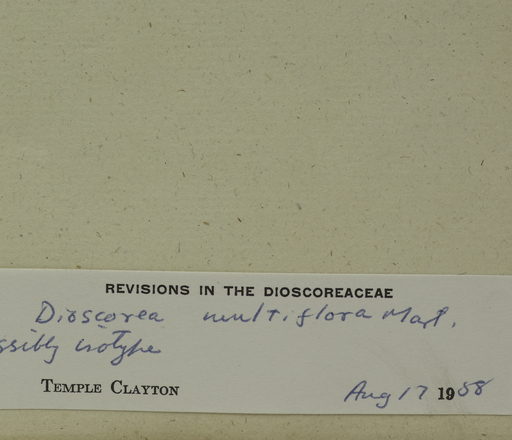 REVISIONS IN THE DIOSCOREACEAE
Dioscorea multiflora Mart.
ssibly isotype
TEMPLE CLAYTON Aug 17 1958